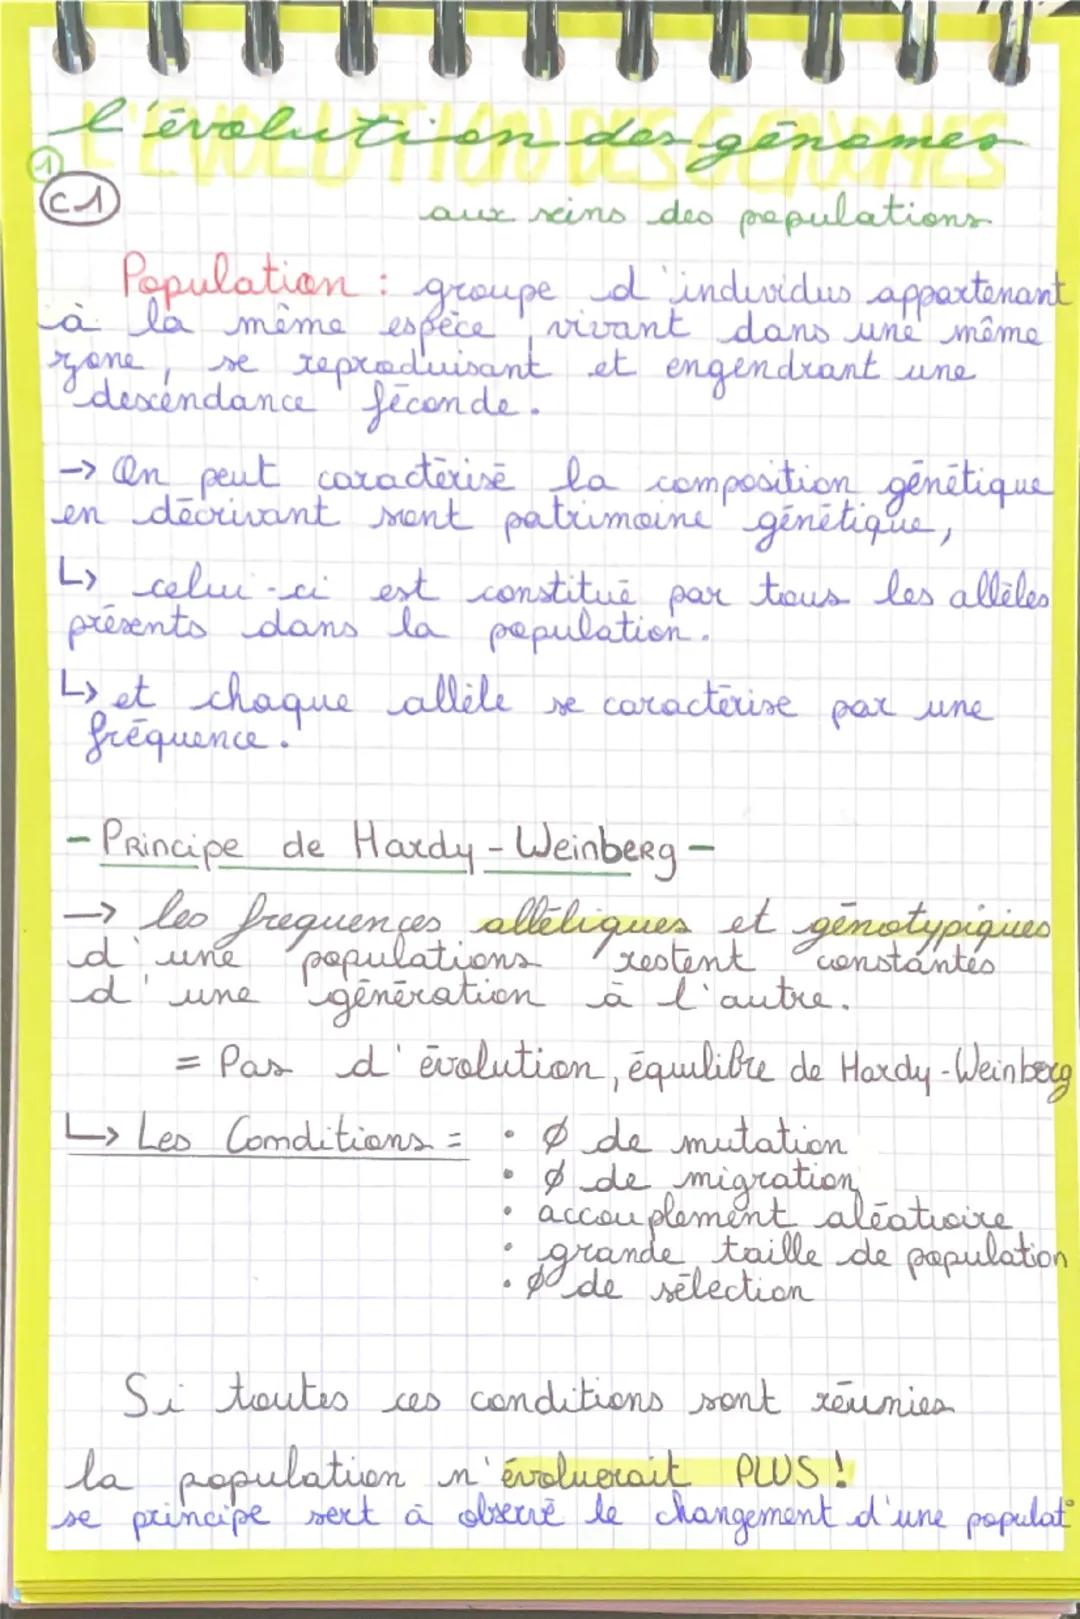 l'évolution des génomes
L'ÉVOLUTION DES GENOMES
1
C1
aux seins des populations
Population : groupe d'individus appartenant
à la même espèce, vivant dans une même
zone, se reproduisant et engendrant une
descendance féconde.
-> On peut caractérisé la composition génétique
en décrivant sont patrimoine génétique,
↳ celui-ci est constitué par tous les allèles
présents dans la population.
↳ et chaque allèle se caractérise par une
fréquence.
- Principe de Hardy-Weinberg -
-> les frequences alléliques et génotypiques
d'une populations restent constantes
d'une génération à l'autre.
= Pas d'évolution, équilibre de Hardy-Weinberg
↳ Les Conditions = • Ø de mutation
• Ø de migration
• accouplement aléatioire
• grande taille de population
• Ø de sélection
Si toutes ces conditions sont réunies
la population n'évoluerait PLUS !
se principe sert à observé le changement d'une populat°